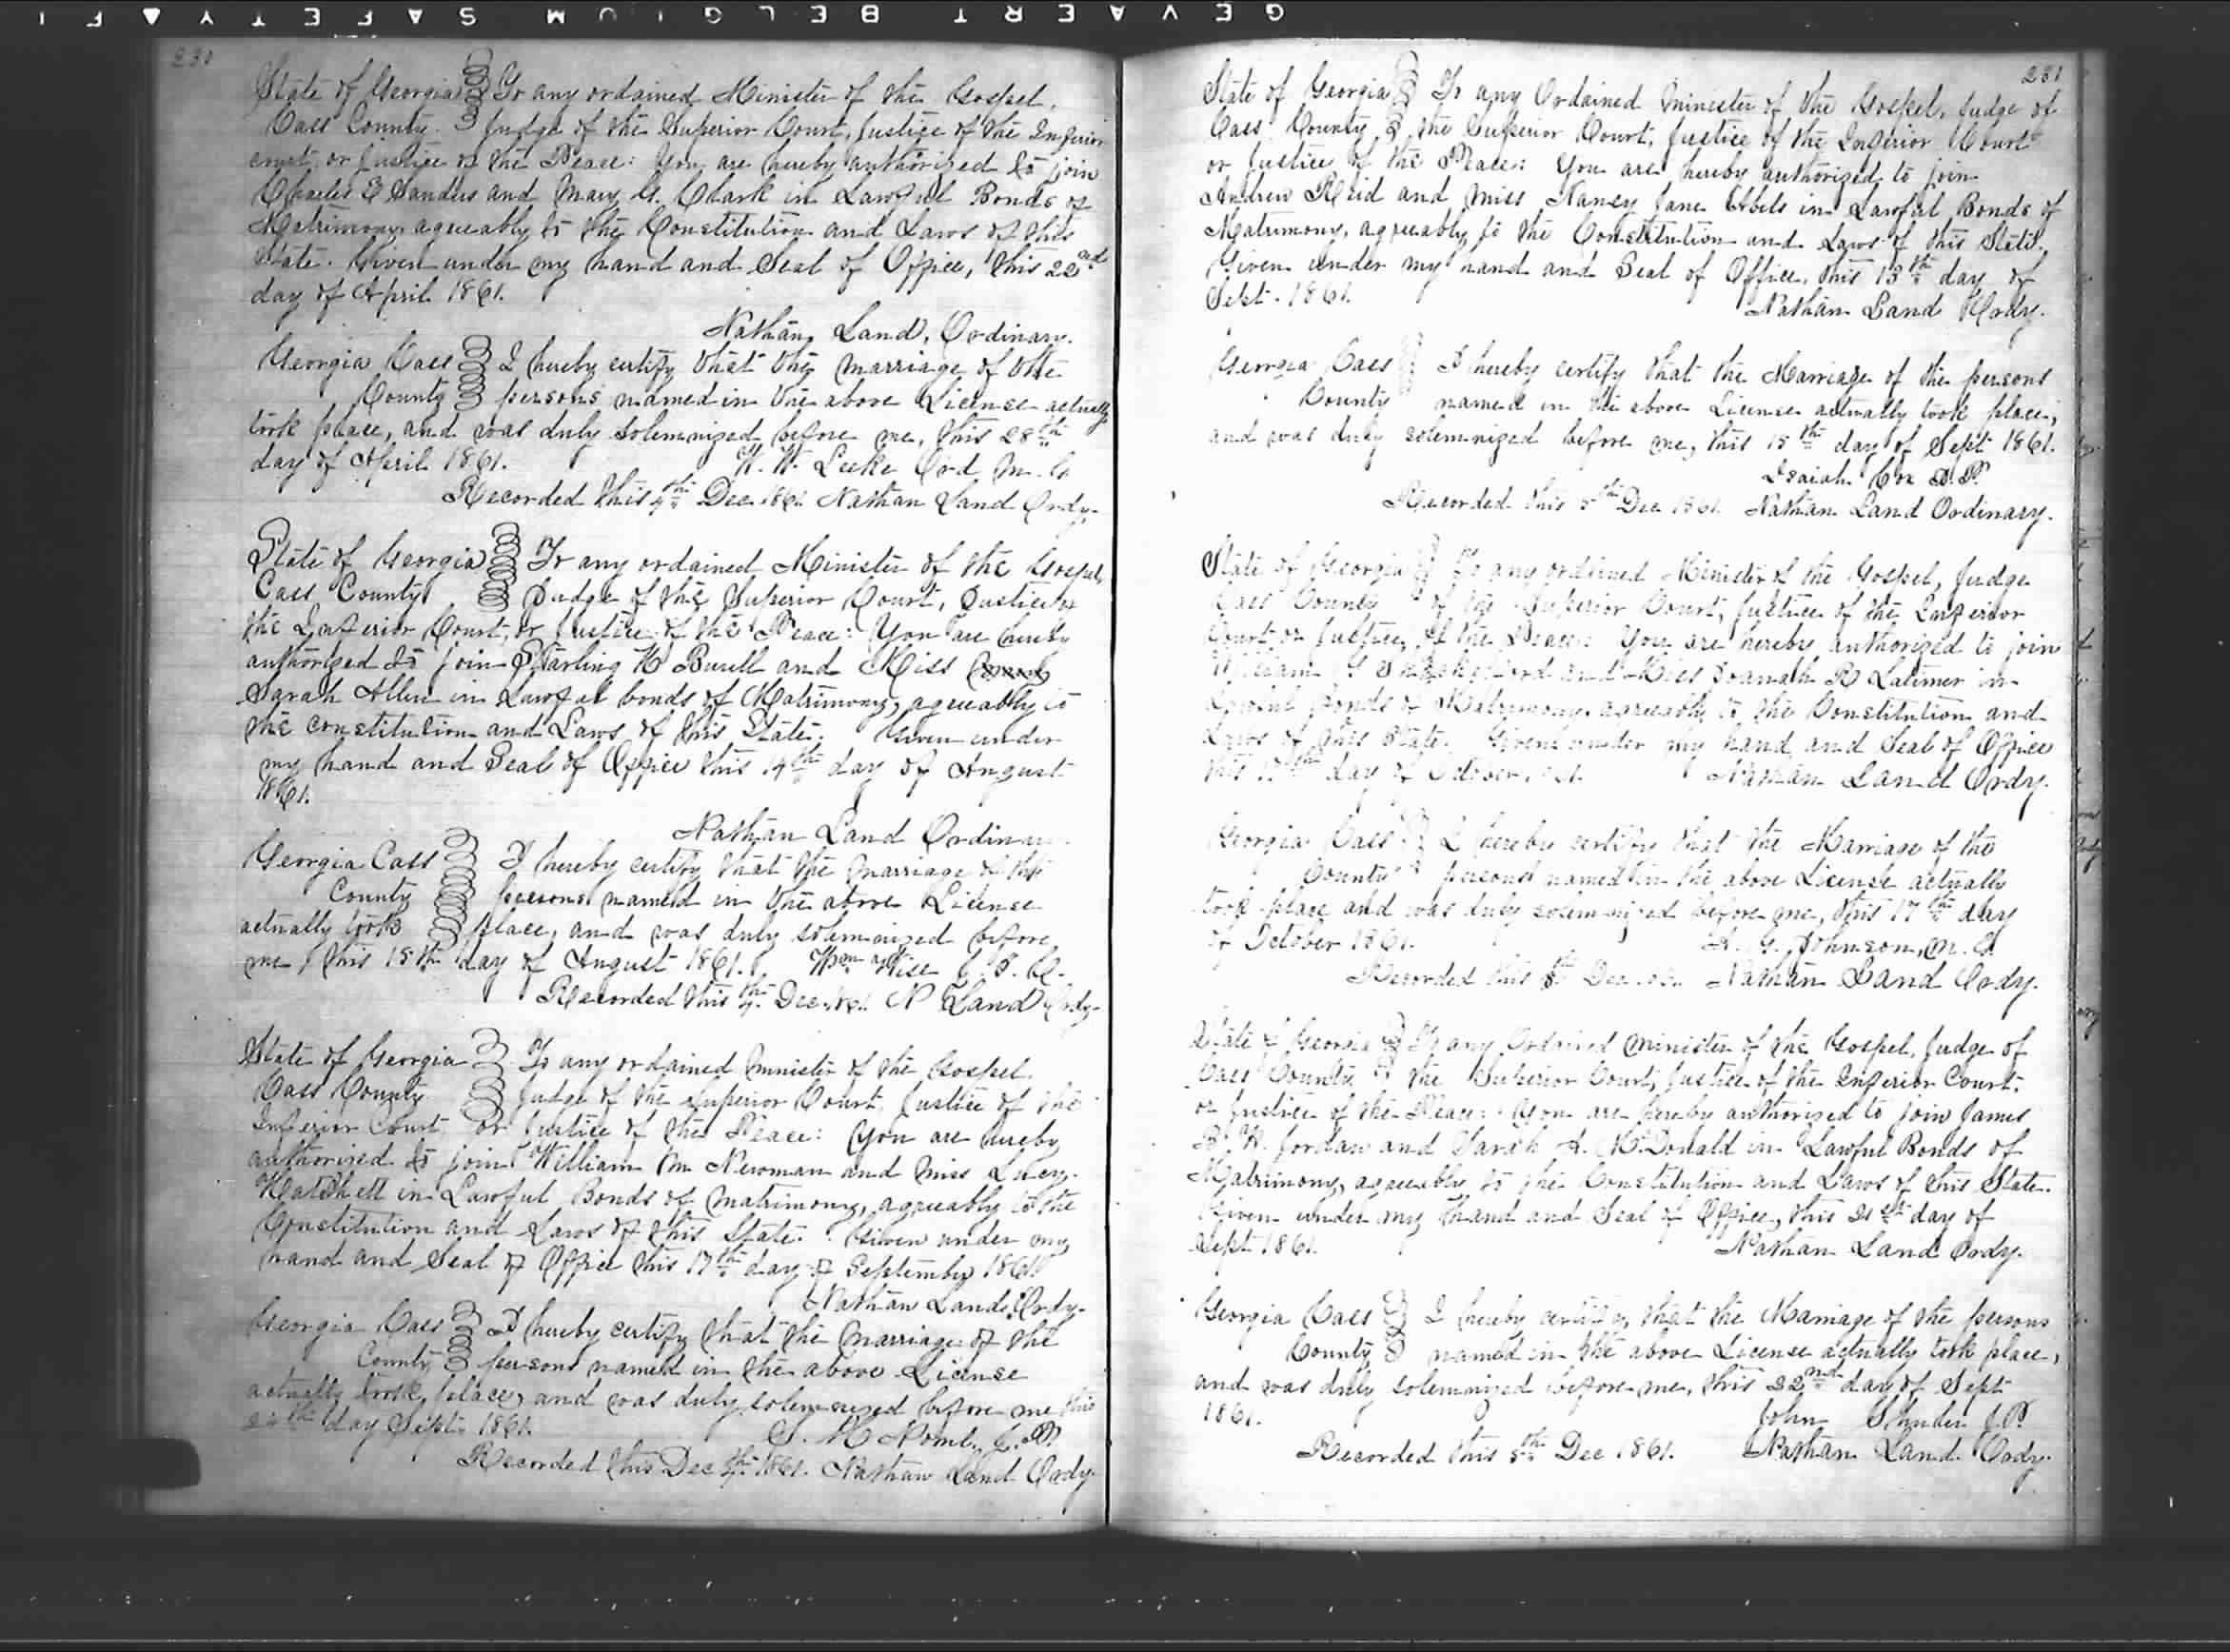 GEVAERT BELGIUM SAFETY FI
230
State of Georgia To any ordained Minister of the Gospel,
Cass County. Judge of the Superior Court, Justice of the Inferior
court, or Justice of the Peace: You are hereby authorized to join
Charles E Sanders and Mary G. Clark in Lawful Bonds of
Matrimony agreeably to the Constitution and Laws of this
State. Given under my hand and Seal of Office, this 22nd
day of April 1861.
Nathan Land, Ordinary.
Georgia Cass I hereby certify that the marriage of the
County persons named in the above License actually
took place, and was duly solemnized before me, this 28th
day of April 1861. Leeke Ord M. G
Recorded this 4th Dec 1861 Nathan Land Ordy.
State of Georgia To any ordained Minister of the Gospel,
Cass County Judge of the Superior Court, Justice of
the Inferior Court, or Justice of the Peace: You are hereby
authorized to join Starling H Burell and Miss
Sarah Allen in Lawful bonds of Matrimony, agreeably to
the constitution and Laws of this State. Given under
my hand and Seal of Office this 14th day of August
1861.
Nathan Land Ordinary
Georgia Cass I hereby certify that the marriage of the
County persons named in the above License
actually took place, and was duly solemnized before
me, this 15th day of August 1861. Wm Wise J. I. C.
Recorded this 4th Dec. 1861. N Land Ordy.
State of Georgia To any ordained minister of the Gospel
Cass County Judge of the Superior Court, Justice of the
Inferior Court or Justice of the Peace: You are hereby
authorized to join William M Newman and Miss Lucy
Hatchett in Lawful Bonds of matrimony, agreeably to the
Constitution and Laws of this State. Given under my
hand and Seal of Office this 17th day of September 1861
Nathan Land, Ordy.
Georgia Cass I hereby certify that the marriage of the
County persons named in the above License
actually took place, and was duly solemnized before me this
day Sept. 1861. J. P.
Recorded this Dec 5th 1861. Nathan Land Ordy.
231
State of Georgia To any Ordained minister of the Gospel, Judge of
Cass County the Superior Court, Justice of the Inferior Court
or Justice of the Peace: You are hereby authorized to join
Andrew Reid and miss Nancy Jane Ebbels in Lawful Bonds of
Matrimony, agreeably to the Constitution and Laws of this State.
Given under my hand and Seal of Office, this 13th day of
Sept. 1861. Nathan Land Ordy.
Georgia Cass I hereby certify that the Marriage of the persons
County named in the above License actually took place,
and was duly solemnized before me, this 15th day of Sept 1861.
Isaiah Cox J. P.
Recorded this 5th Dec 1861 Nathan Land Ordinary.
State of Georgia To any ordained Minister of the Gospel, Judge
Cass County of the Superior Court, Justice of the Inferior
Court or Justice of the Peace: You are hereby authorized to join
William and Miss Joanah R Latimer in
Lawful Bonds of Matrimony, agreeably to the Constitution and
Laws of this State. Given under my hand and Seal of Office
this day of October, 1861. Nathan Land Ordy.
Georgia Cass I hereby certify that the Marriage of the
County persons named in the above License actually
took place and was duly solemnized before me, this 17th day
of October 1861. A. G. Johnson, M. G.
Recorded this 5th Dec 1861. Nathan Land Ordy.
State of Georgia To any Ordained minister of the Gospel, Judge of
Cass County the Superior Court, Justice of the Inferior Court.
or Justice of the Peace: You are hereby authorized to join James
B. H. Jordan and Sarah A. McDonald in Lawful Bonds of
Matrimony, agreeably to the Constitution and Laws of this State.
Given under my hand and Seal of Office, this 21st day of
Sept 1861. Nathan Land Ordy.
Georgia Cass I hereby certify, that the Marriage of the persons
County named in the above License actually took place,
and was duly solemnized before me, this 22nd day of Sept
1861. John J. P.
Recorded this 5th Dec 1861. Nathan Land Ordy.